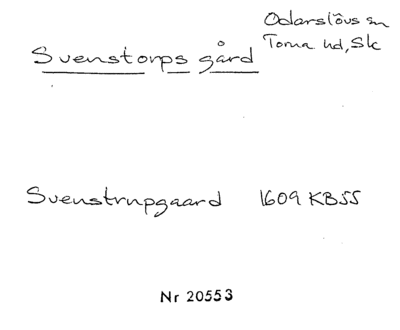 Odarslövs sn
Torna hd, Sk
Svenstorps gård
Svenstrupgaard 1609 KBSS
Nr 20553